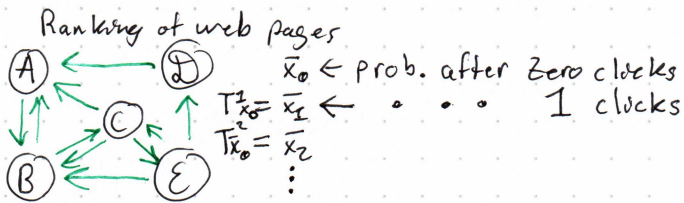 Ranking of web pages
A D x̄₀ ← prob. after zero clicks
C T¹x̄₀ = x̄₁ ← • • • 1 clicks
B E T²x̄₀ = x̄₂
⋮